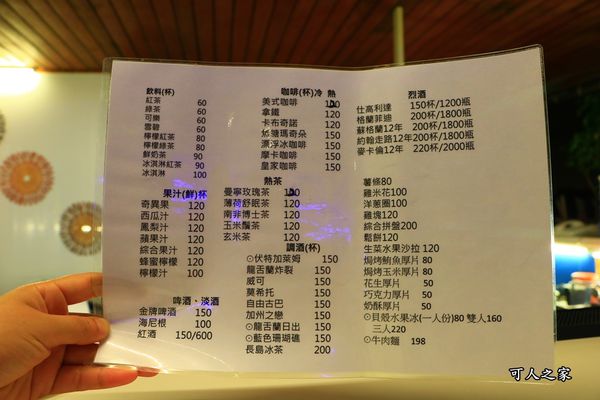 飲料(杯)
紅茶 60
綠茶 60
可樂 60
雪碧 60
檸檬紅茶 80
檸檬綠茶 80
鮮奶茶 90
冰淇淋紅茶 90
冰淇淋 100
果汁(鮮)杯
奇異果 120
西瓜汁 120
鳳梨汁 120
蘋果汁 120
綜合果汁 120
蜂蜜檸檬 120
檸檬汁 100
啤酒、淡酒
金牌啤酒 150
海尼根 100
紅酒 150/600
咖啡(杯)冷 熱
美式咖啡
拿鐵 120
卡布奇諾 120
焦糖瑪奇朵 150
漂浮冰咖啡 150
摩卡咖啡 150
皇家咖啡 150
熱茶
曼寧玫瑰茶
薄荷舒眠茶 120
南非博士茶 120
玉米鬚茶 120
玄米茶 120
調酒(杯)
⊙伏特加萊姆 150
龍舌蘭炸裂 150
威可 150
莫希托 150
自由古巴 150
加州之戀 150
⊙龍舌蘭日出 150
⊙藍色珊瑚礁 150
長島冰茶 200
烈酒
仕高利達 150杯/1200瓶
格蘭菲迪 200杯/1800瓶
蘇格蘭12年 200杯/2000瓶
約翰走路12年200杯/1800瓶
麥卡倫12年 220杯/2000瓶
薯條80
雞米花100
洋蔥圈100
雞塊120
綜合拼盤200
鬆餅120
生菜水果沙拉 120
焗烤鮪魚厚片 80
焗烤玉米厚片 80
花生厚片 50
巧克力厚片 50
奶酥厚片 50
⊙貝殼水果冰(一人份)80 雙人160
三人220
⊙牛肉麵 198
可人之家